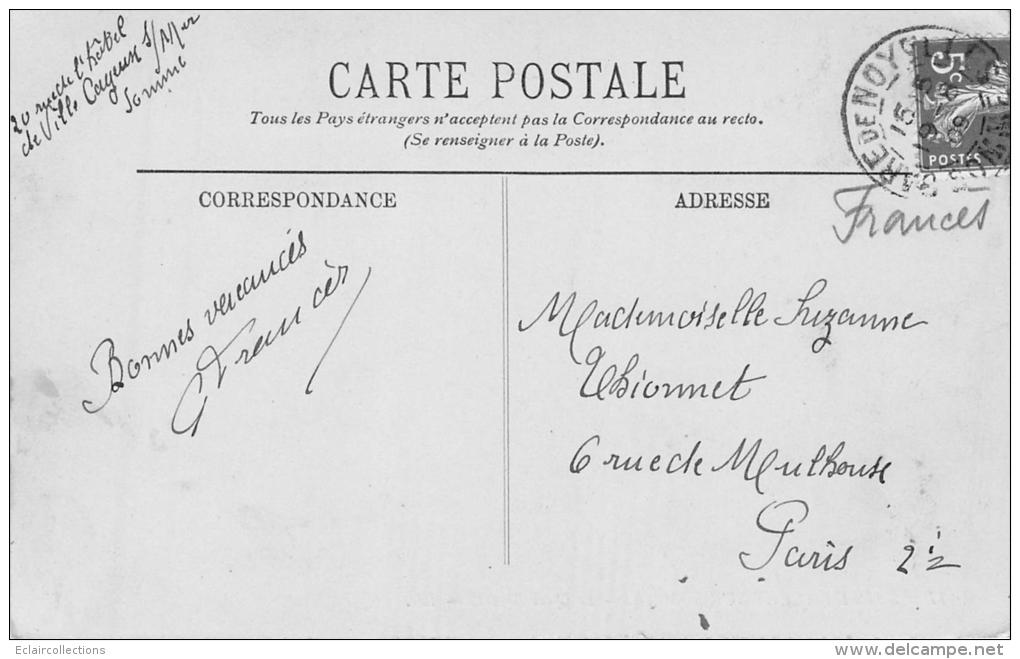 20 rue de l'hôtel
de Ville Cayeux s/Mer
Somme
CARTE POSTALE
Tous les Pays étrangers n'acceptent pas la Correspondance au recto.
(Se renseigner à la Poste).
5c
POSTES
GARE DE NOYELLES
SOMME
Frances
CORRESPONDANCE
ADRESSE
Bonnes vacances
Francès
Mademoiselle Suzanne
Thionnet
6 rue de Mulhouse
Paris 2
Eclaircollections
www.delcampe.net